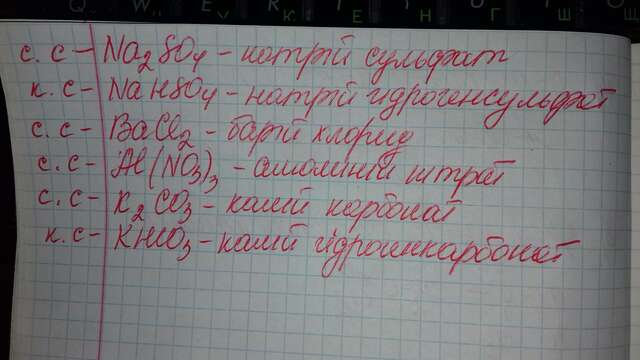 с. с – Na2SO4 – натрій сульфат
к. с – NaHSO4 – натрій гідрогенсульфат
с. с – BaCl2 – барій хлорид
с. с – Al(NO3)3 – алюміній нітрат
с. с – K2CO3 – калій карбонат
к. с – KHCO3 – калій гідрогенкарбонат